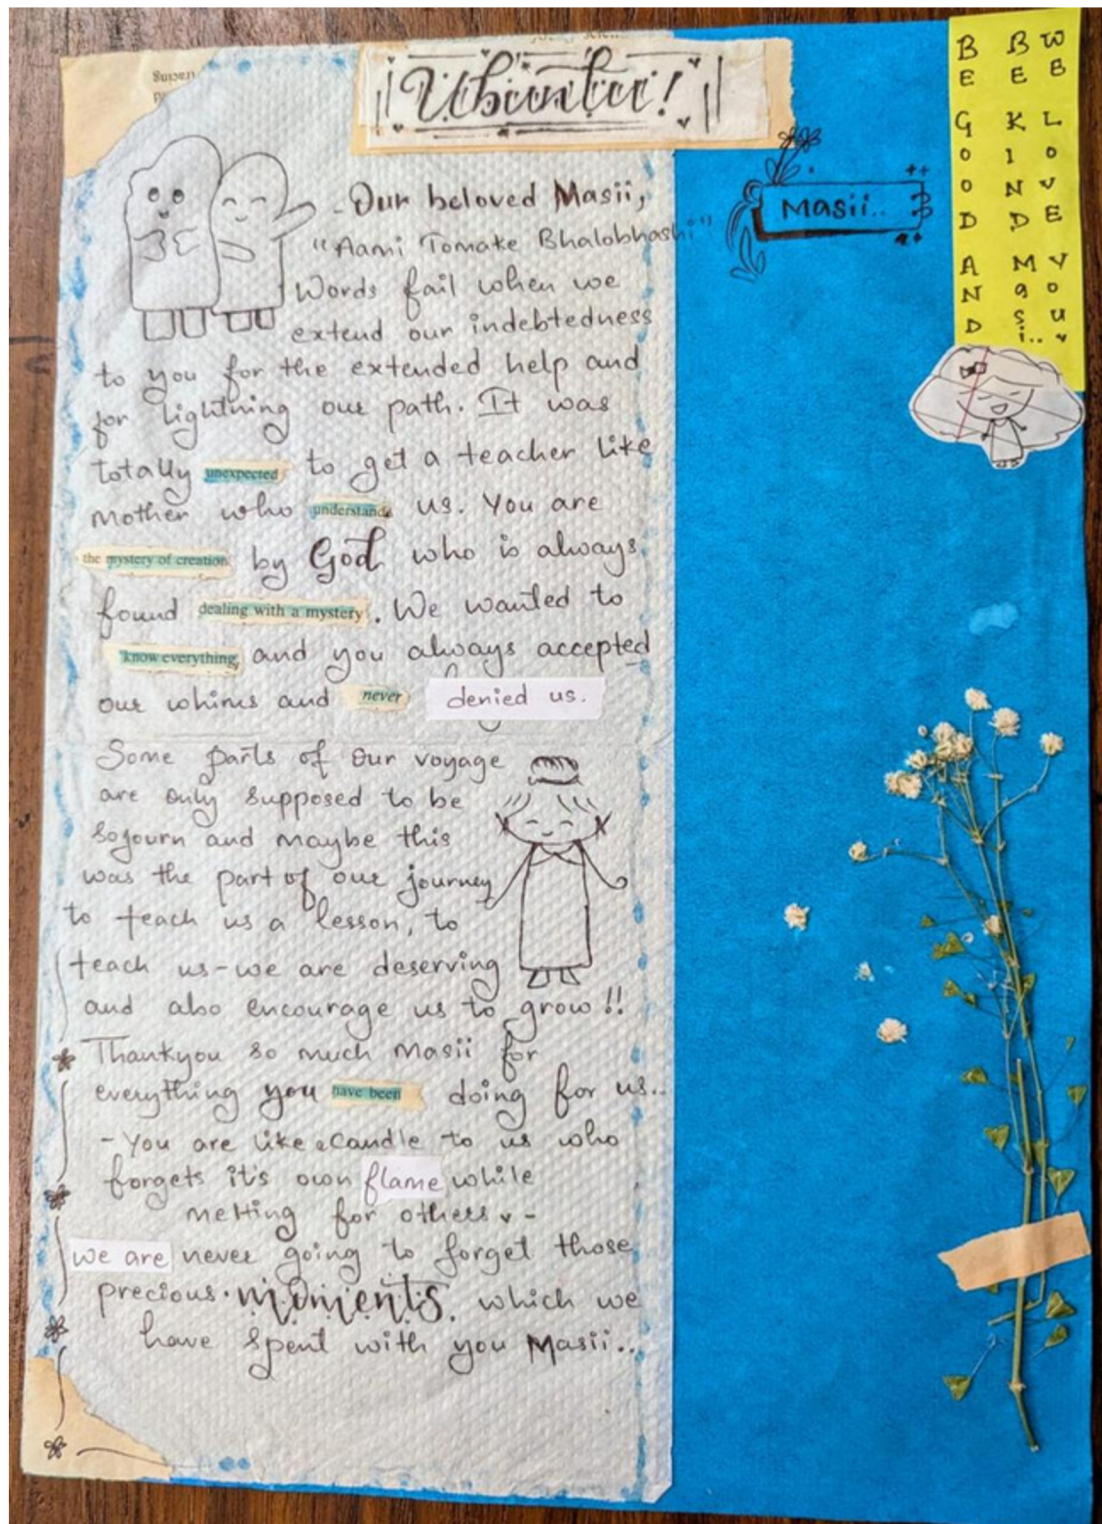 Ubuntu!
- Our beloved Masii,
"Aami Tomake Bhalobhashi"
Words fail when we
extend our indebtedness
to you for the extended help and
for lightning our path. It was
totally unexpected to get a teacher like
mother who understands us. You are
the mystery of creation by God who is always
found dealing with a mystery. We wanted to
know everything, and you always accepted
our whims and never denied us.
Some parts of our voyage
are only supposed to be
sojourn and maybe this
was the part of our journey
to teach us a lesson, to
teach us - we are deserving
and also encourage us to grow!!
Thankyou so much Masii for
everything you have been doing for us..
- You are like a Candle to us who
forgets it's own flame while
melting for others -
we are never going to forget those
precious moments. which we
have spent with you Masii..
Masii..
BE GOOD AND
BE KIND Masi..
WE LOVE YOU